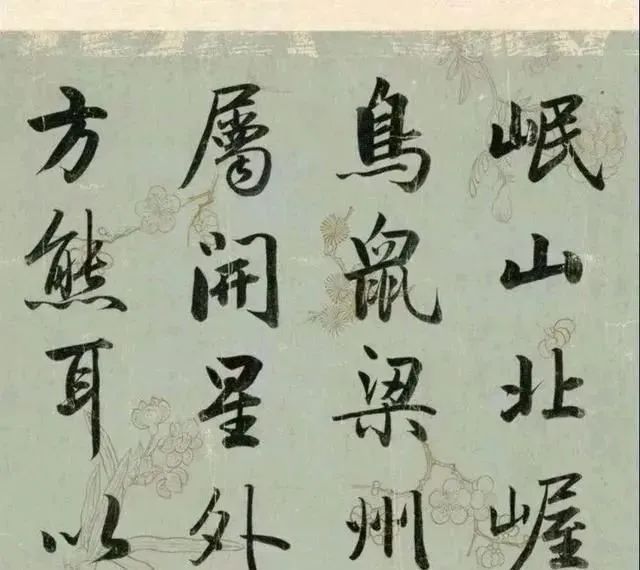 岷山北崌
鳥鼠梁州
属開星外
方熊耳以